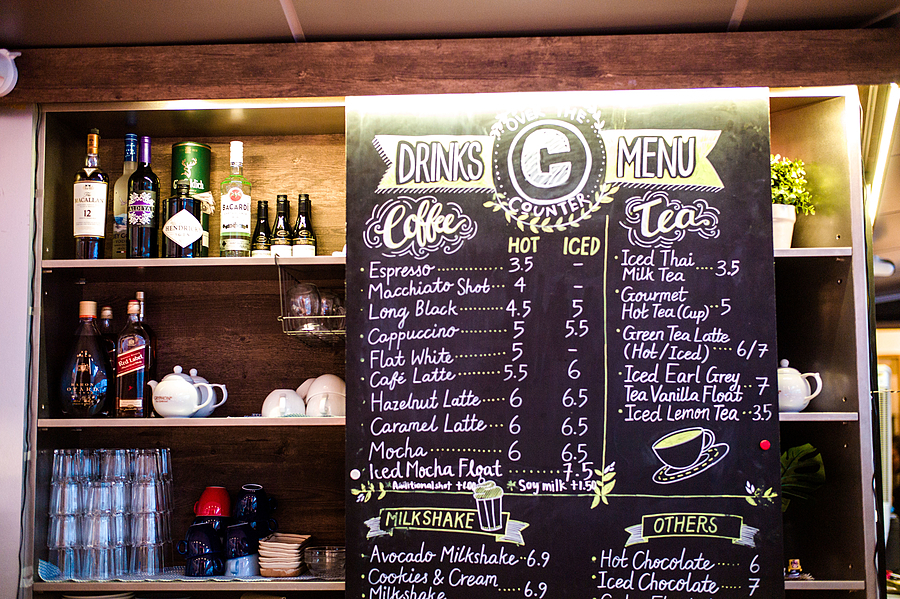 OVER THE
DRINKS C MENU
COUNTER
Coffee
HOT ICED
Espresso 3.5 -
Macchiato Shot 4 -
Long Black 4.5 5
Cappuccino 5 5.5
Flat White 5 -
Café Latte 5.5 6
Hazelnut Latte 6 6.5
Caramel Latte 6 6.5
Mocha 6 6.5
Iced Mocha Float 7.5
Additional shot +1.00 Soy milk +1.50
Tea
Iced Thai
Milk Tea 3.5
Gourmet
Hot Tea (Cup) 5
Green Tea Latte
(Hot/Iced) 6/7
Iced Earl Grey
Tea Vanilla Float 7
Iced Lemon Tea 3.5
MILKSHAKE
Avocado Milkshake 6.9
Cookies & Cream
Milkshake 6.9
OTHERS
Hot Chocolate 6
Iced Chocolate 7
MACALLAN
12
HENDRICK'S
BACARDI
BARON
OTARD
Red Label